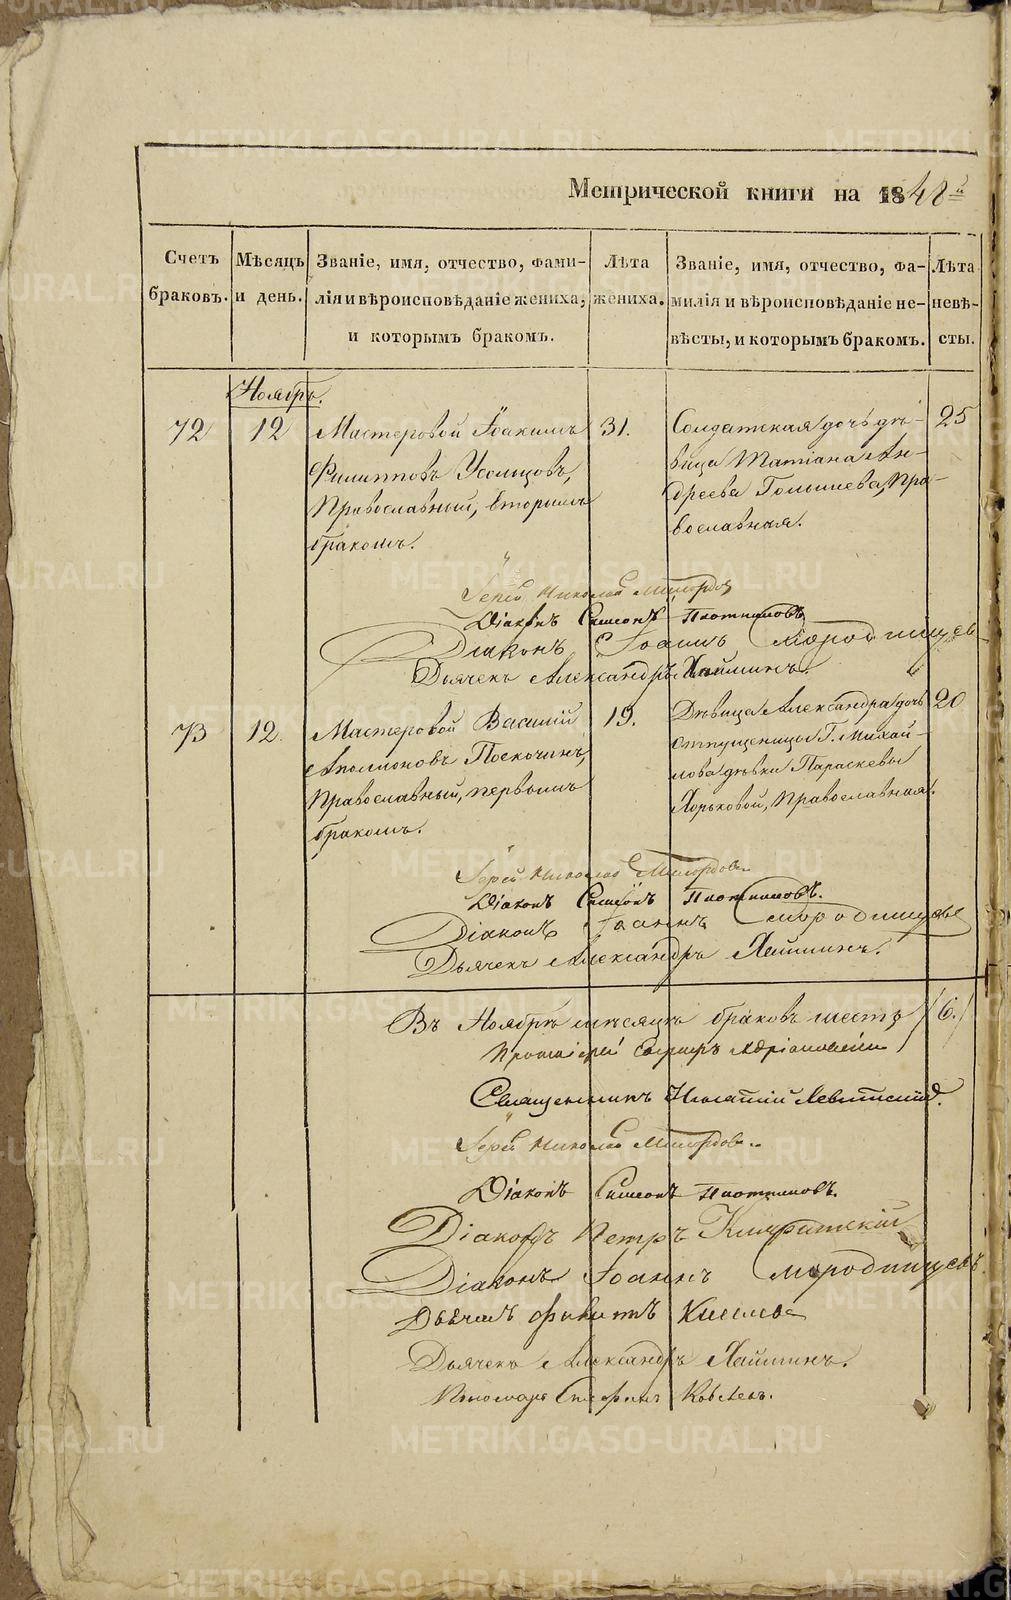 Метрической книги на 1848й
Счетъ браковъ.
Мѣсяцъ и день.
Званіе, имя, отчество, фами-
лія и вѣроисповѣданіе жениха,
и которымъ бракомъ.
Лѣта жениха.
Званіе, имя, отчество, фа-
милія и вѣроисповѣданіе не-
вѣсты, и которымъ бракомъ.
Лѣта невѣ-
сты.
Ноябрь.
72
12
Мастеровой Іоакимъ
Филипповъ Усольцовъ,
Православный, вторымъ
бракомъ.
31.
Солдатская дочь дѣ-
вица Татіана Ан-
дреева Голышева, Пра-
вославная.
25
Іерей Николай
Діаконъ Симеонъ Плотниковъ
Діаконъ Іоаннъ Смородинцевъ
Дьячекъ Александръ Хаймин.
73
12.
Мастеровой Василій
Аполлоновъ Поскочинъ,
Православный, первымъ
бракомъ.
19.
Дѣвица Александра дочь
отпущеницы Г. Михай-
лова дѣвки Параскевы
Хорьковой, Православная.
20
Іерей Николай
Діаконъ Симеонъ Плотниковъ.
Діаконъ Іоаннъ Смородинцевъ
Дьячекъ Александръ Хайминъ.
Въ Ноябрѣ мѣсяцѣ браковъ шесть /6./
Протоіерей
Священникъ Игнатій Левитскій.
Іерей Николай
Діаконъ Симеонъ Плотниковъ.
Діаконъ Петръ
Діаконъ Іоаннъ Смородинцевъ
Дьячекъ Филиппъ Киселев
Дьячекъ Александръ Хайминъ.
Пономарь Стефанъ
METRIKI.GASO-URAL.RU